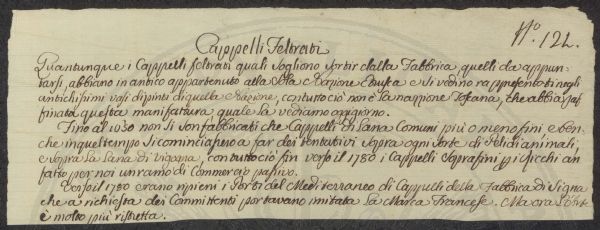 N.o 122.
Cappelli Feltrati
Quantunque i Cappelli feltrati quali sogliono sortir dalla Fabbrica, quelli da appun-
tarsi, abbiano in antico appartenuto alla sola Nazione Etrusca e si vedino rappresentati negli
antichissimi vasi dipinti di quella Nazione, contuttociò non è la nazzione Toscana, che abbia raf
finata questa manifattura, quale la vediamo oggigiorno.
Fino al 1030 non si son fabbricati che Cappelli di Lana Comuni più o meno fini, e ben-
che in quel tempo si cominciassero a far dei tentativi sopra ogni sorte di Peli di animali,
e sopra la Lana di Vigogna, contuttociò fin verso il 1780 i Cappelli Soprafini
fatto per noi un ramo di Commercio passivo.
il 1780 erano ripieni i Porti del Mediterraneo di Cappelli della Fabbrica di Signa
che a richiesta dei Committenti portavano imitata la Marca Francese. Ma ora
è molto più ristretta.